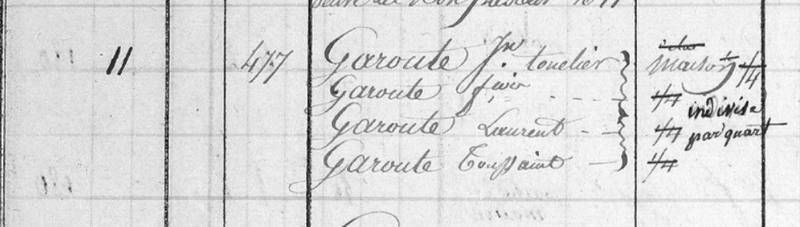 11 477 Garoute Jn. tonelier maison 1/4
Garoute 1/4 indivise
Garoute Laurent 1/4 par quart
Garoute Toussaint 1/4